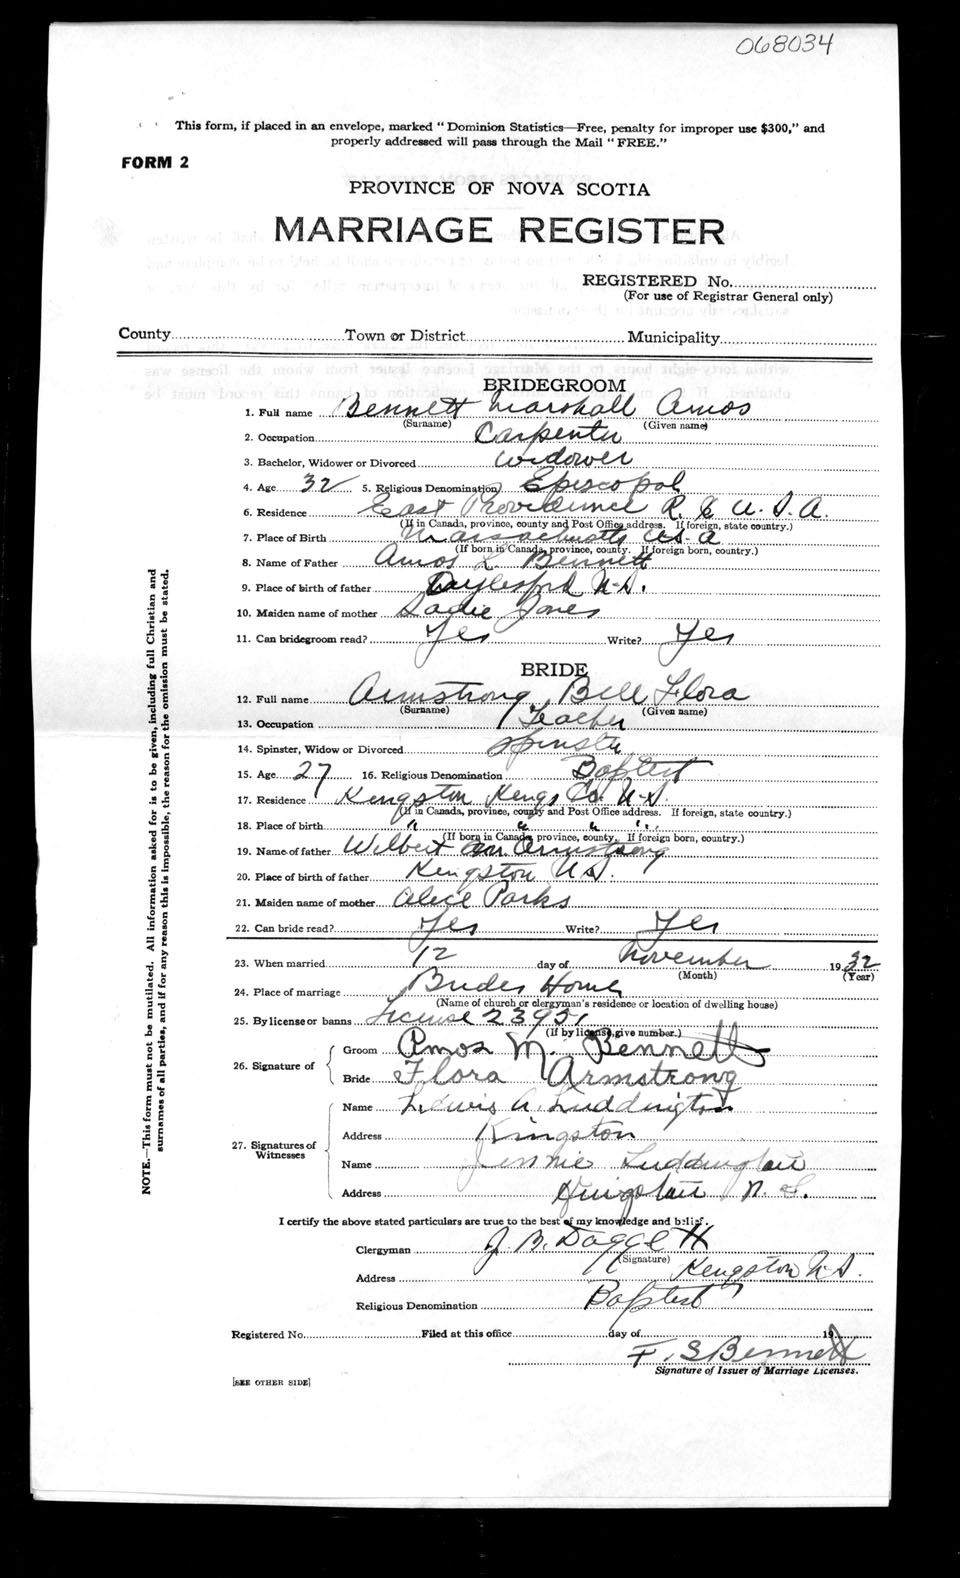 068034
This form, if placed in an envelope, marked " Dominion Statistics—Free, penalty for improper use $300," and
properly addressed will pass through the Mail " FREE."
FORM 2
PROVINCE OF NOVA SCOTIA
MARRIAGE REGISTER
REGISTERED No.
(For use of Registrar General only)
County Town or District Municipality
BRIDEGROOM
1. Full name Bennett Marshall Amos
(Surname) (Given name)
2. Occupation Carpenter
3. Bachelor, Widower or Divorced widower
4. Age 32 5. Religious Denomination Episcopal
6. Residence East Providence R I U. S. A.
(If in Canada, province, county and Post Office address. If foreign, state country.)
7. Place of Birth Massachusetts U S. A
(If born in Canada, province, county. If foreign born, country.)
8. Name of Father Amos L Bennett
9. Place of birth of father N-S.
10. Maiden name of mother Sadie Jones
11. Can bridegroom read? Yes Write? Yes
BRIDE
12. Full name Armstrong Bell Flora
(Surname) (Given name)
13. Occupation Teacher
14. Spinster, Widow or Divorced Spinster
15. Age 27 16. Religious Denomination Baptist
17. Residence Kingston Kings Co. N-S.
(If in Canada, province, county and Post Office address. If foreign, state country.)
18. Place of birth " " " "
(If born in Canada, province, county. If foreign born, country.)
19. Name of father Wilbert Armstrong
20. Place of birth of father Kingston N S.
21. Maiden name of mother Alice Parks
22. Can bride read? Yes Write? Yes
23. When married 12 day of November 1932
(Month) (Year)
24. Place of marriage Brides Home
(Name of church or clergyman's residence or location of dwelling house)
25. By license or banns License 23951
(If by license, give number.)
26. Signature of Groom Amos M. Bennett
Bride Flora Armstrong
27. Signatures of Witnesses Name Lewis A. Luddington
Address Kingston
Name Jennie Luddington
Address Kingston N. S.
I certify the above stated particulars are true to the best of my knowledge and belief.
Clergyman J. B. Daggett
(Signature)
Address Kingston N.S.
Religious Denomination Baptist
Registered No. Filed at this office day of 19
F. S Bennett
Signature of Issuer of Marriage Licenses.
[SEE OTHER SIDE]
NOTE.—This form must not be mutilated. All information asked for is to be given, including full Christian and
surnames of all parties, and if for any reason this is impossible, the reason for the omission must be stated.